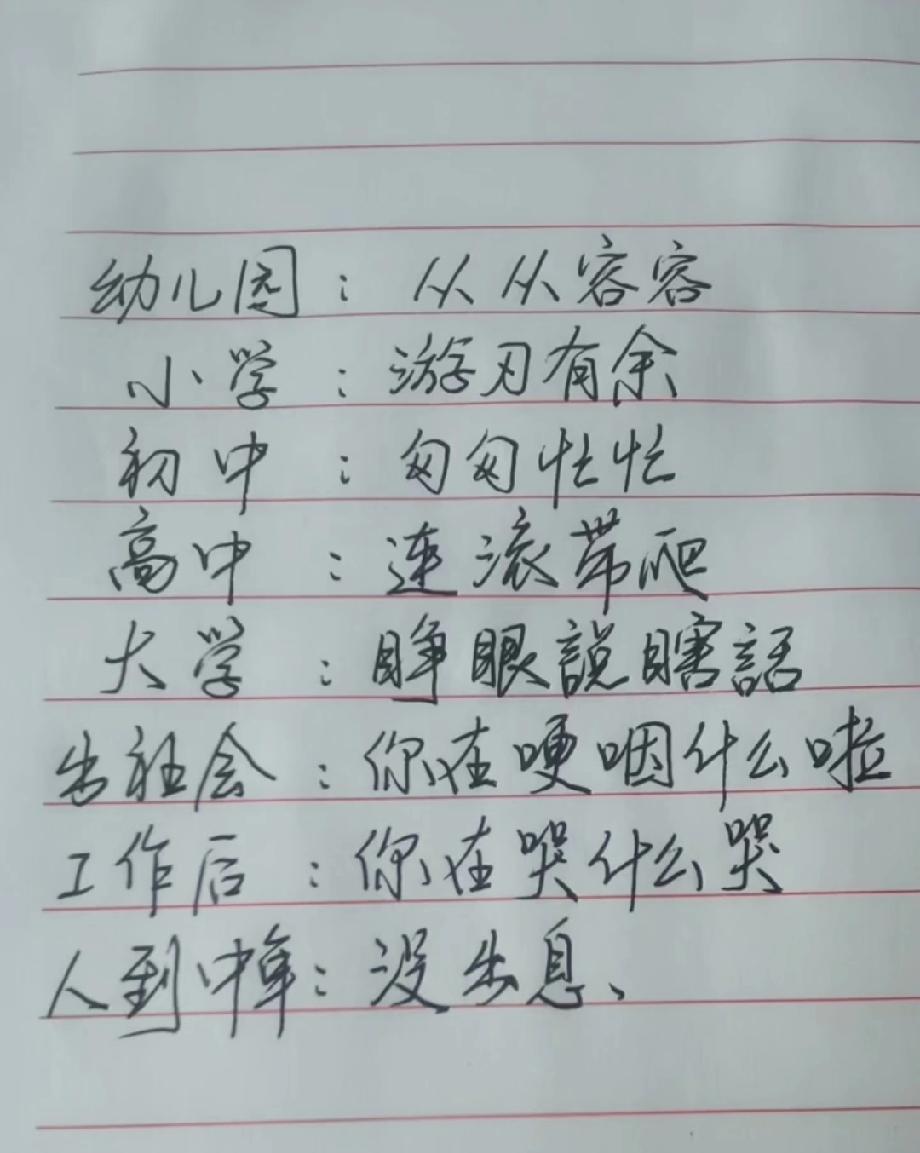 幼儿园：从从容容
小学：游刃有余
初中：匆匆忙忙
高中：连滚带爬
大学：睁眼說瞎話
出社会：你在哽咽什么啦
工作后：你在哭什么哭
人到中年：没出息、